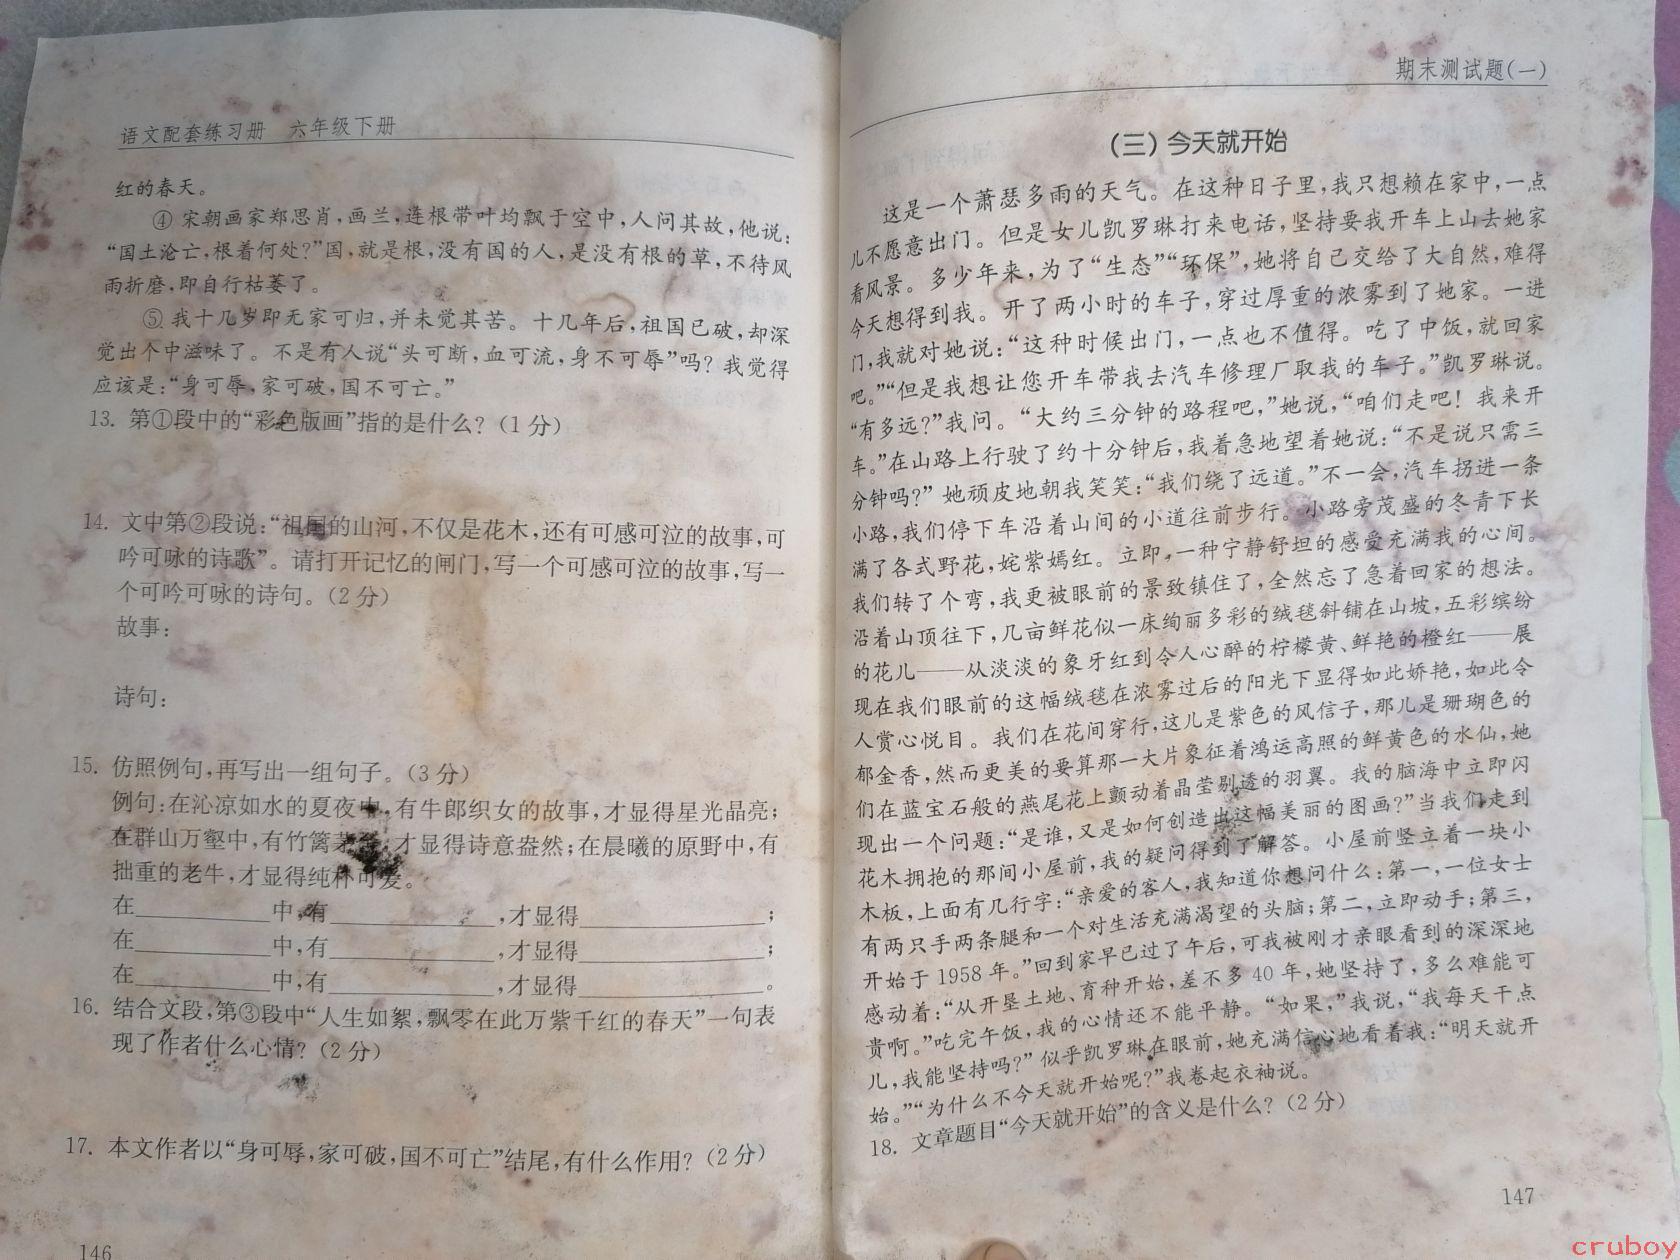 语文配套练习册 六年级下册
红的春天。
④ 宋朝画家郑思肖,画兰,连根带叶均飘于空中,人问其故,他说:
“国土沦亡,根着何处?”国,就是根,没有国的人,是没有根的草,不待风
雨折磨,即自行枯萎了。
⑤ 我十几岁即无家可归,并未觉其苦。十几年后,祖国已破,却深
觉出个中滋味了。不是有人说“头可断,血可流,身不可辱”吗?我觉得
应该是:“身可辱,家可破,国不可亡。”
13. 第①段中的“彩色版画”指的是什么?(1分)
14. 文中第②段说:“祖国的山河,不仅是花木,还有可感可泣的故事,可
吟可咏的诗歌”。请打开记忆的闸门,写一个可感可泣的故事,写一
个可吟可咏的诗句。(2分)
故事:
诗句:
15. 仿照例句,再写出一组句子。(3分)
例句:在沁凉如水的夏夜中,有牛郎织女的故事,才显得星光晶亮;
在群山万壑中,有竹篱茅舍,才显得诗意盎然;在晨曦的原野中,有
拙重的老牛,才显得纯朴可爱。
在 中,有 ,才显得 ;
在 中,有 ,才显得 ;
在 中,有 ,才显得 。
16. 结合文段,第③段中“人生如絮,飘零在此万紫千红的春天”一句表
现了作者什么心情?(2分)
17. 本文作者以“身可辱,家可破,国不可亡”结尾,有什么作用?(2分)
146
期末测试题(一)
(三)今天就开始
这是一个萧瑟多雨的天气。在这种日子里,我只想赖在家中,一点
儿不愿意出门。但是女儿凯罗琳打来电话,坚持要我开车上山去她家
看风景。多少年来,为了“生态”“环保”,她将自己交给了大自然,难得
今天想得到我。开了两小时的车子,穿过厚重的浓雾到了她家。一进
门,我就对她说:“这种时候出门,一点也不值得。吃了中饭,就回家
吧。”“但是我想让您开车带我去汽车修理厂取我的车子。”凯罗琳说。
“有多远?”我问。“大约三分钟的路程吧,”她说,“咱们走吧!我来开
车。”在山路上行驶了约十分钟后,我着急地望着她说:“不是说只需三
分钟吗?”她顽皮地朝我笑笑:“我们绕了远道。”不一会,汽车拐进一条
小路,我们停下车沿着山间的小道往前步行。小路旁茂盛的冬青下长
满了各式野花,姹紫嫣红。立即,一种宁静舒坦的感受充满我的心间。
我们转了个弯,我更被眼前的景致镇住了,全然忘了急着回家的想法。
沿着山顶往下,几亩鲜花似一床绚丽多彩的绒毯斜铺在山坡,五彩缤纷
的花儿——从淡淡的象牙红到令人心醉的柠檬黄、鲜艳的橙红——展
现在我们眼前的这幅绒毯在浓雾过后的阳光下显得如此娇艳,如此令
人赏心悦目。我们在花间穿行,这儿是紫色的风信子,那儿是珊瑚色的
郁金香,然而更美的要算那一大片象征着鸿运高照的鲜黄色的水仙,她
们在蓝宝石般的燕尾花上颤动着晶莹剔透的羽翼。我的脑海中立即闪
现出一个问题:“是谁,又是如何创造出这幅美丽的图画?”当我们走到
花木拥抱的那间小屋前,我的疑问得到了解答。小屋前竖立着一块小
木板,上面有几行字:“亲爱的客人,我知道你想问什么:第一,一位女士
有两只手两条腿和一个对生活充满渴望的头脑;第二,立即动手;第三,
开始于1958年。”回到家早已过了午后,可我被刚才亲眼看到的深深地
感动着:“从开垦土地、育种开始,差不多40年,她坚持了,多么难能可
贵啊。”吃完午饭,我的心情还不能平静。“如果,”我说,“我每天干点
儿,我能坚持吗?”似乎凯罗琳在眼前,她充满信心地看着我:“明天就开
始。”“为什么不今天就开始呢?”我卷起衣袖说。
18. 文章题目“今天就开始”的含义是什么?(2分)
147
cruboy